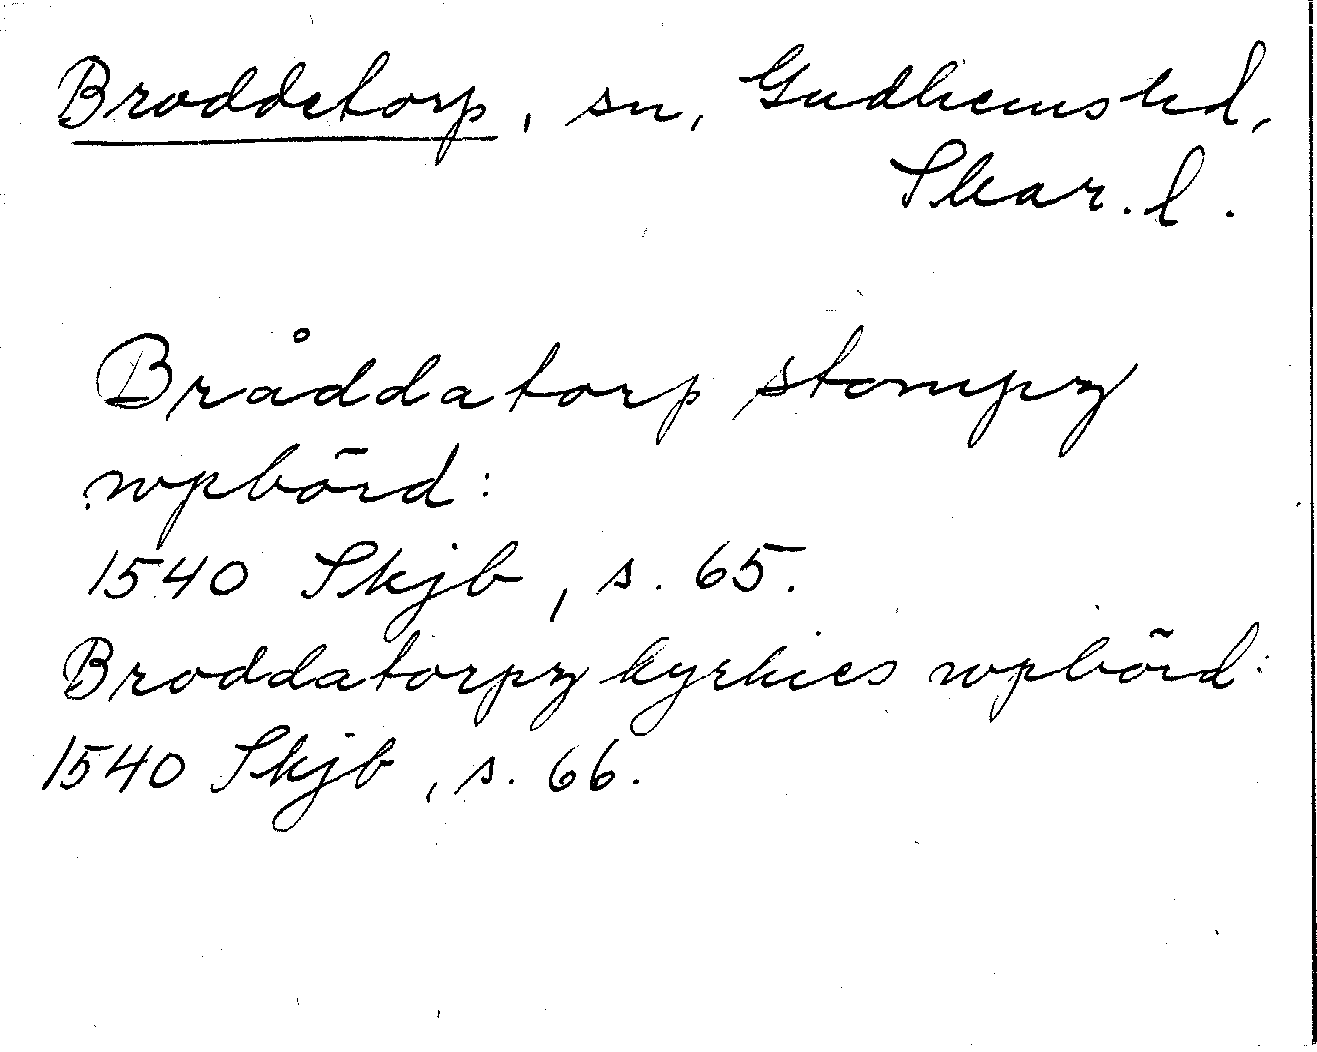 Broddetorp, sn, Gudhems hd,
Skar. l.
Bråddatorp stompz
wpbörd:
1540 Skjb, s. 65.
Broddatorpz kyrkies wpbörd:
1540 Skjb, s. 66.